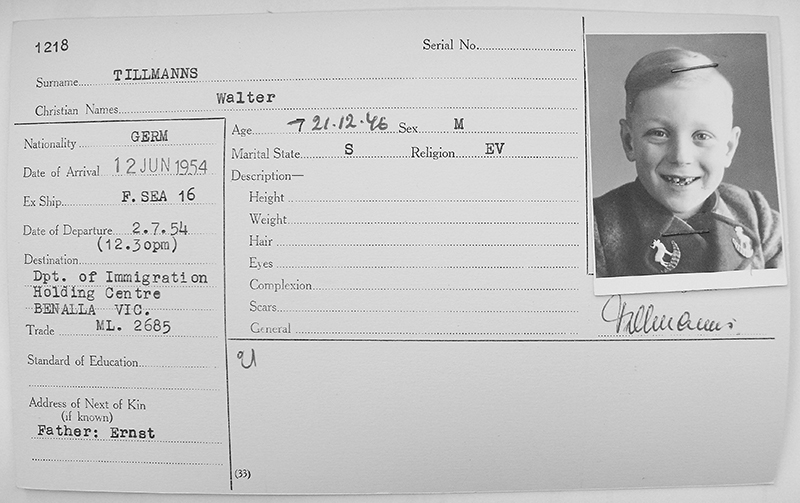 1218
Serial No.
Surname TILLMANNS
Christian Names Walter
Nationality GERM
Age 7 21.12.46 Sex M
Date of Arrival 12 JUN 1954
Marital State S Religion EV
Ex Ship F. SEA 16
Description—
Height
Date of Departure 2.7.54
(12.30pm)
Weight
Hair
Destination
Dpt. of Immigration
Holding Centre
BENALLA VIC.
Eyes
Complexion
Scars
Trade ML. 2685
General
Tillmanns.
Standard of Education
Address of Next of Kin
(if known)
Father: Ernst
(33)